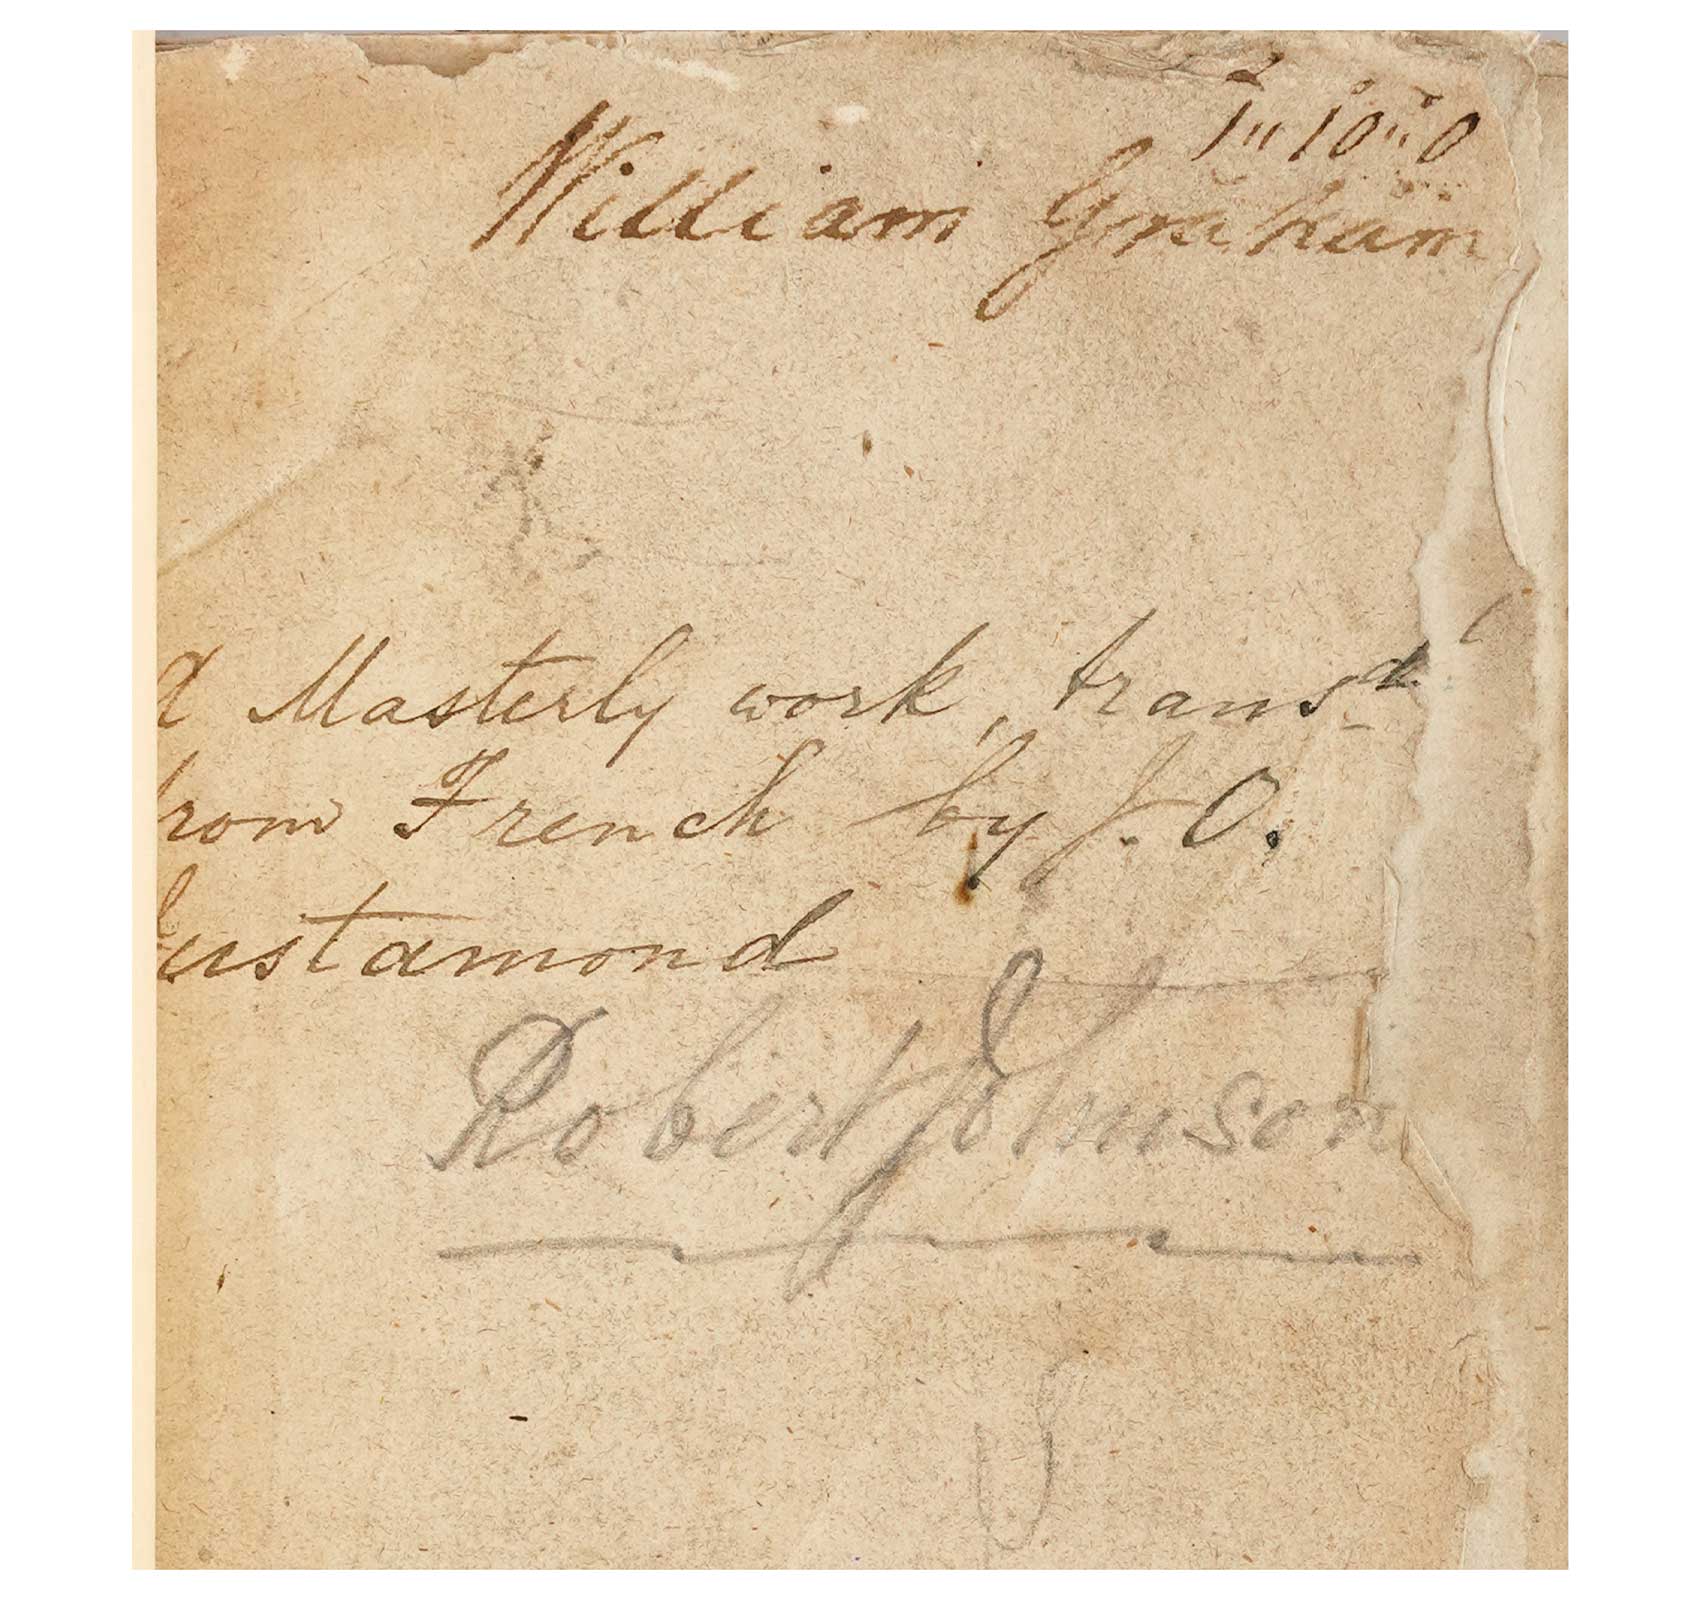 1 " 10 " 0
William Graham
a Masterly work, transd.
from French by J. O.
Justamond
Robert Johnson